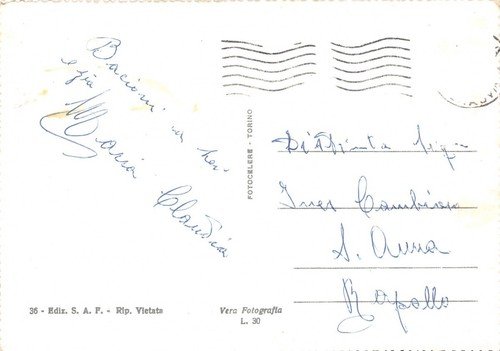 Bacioni
Maria Claudia
FOTOCELERE - TORINO
Distinta Sig.
Ines
S. Anna
Rapallo
36 - Ediz. S. A. F. - Rip. Vietata
Vera Fotografia
L. 30